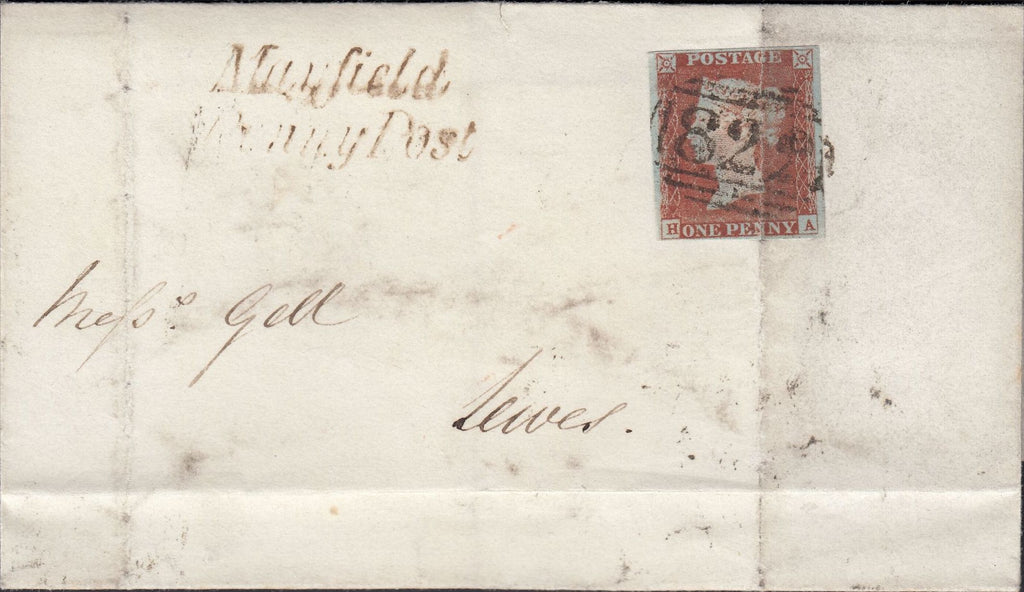 Mayfield
Penny Post
POSTAGE
82
H ONE PENNY A
Messrs Gell
Lewes.